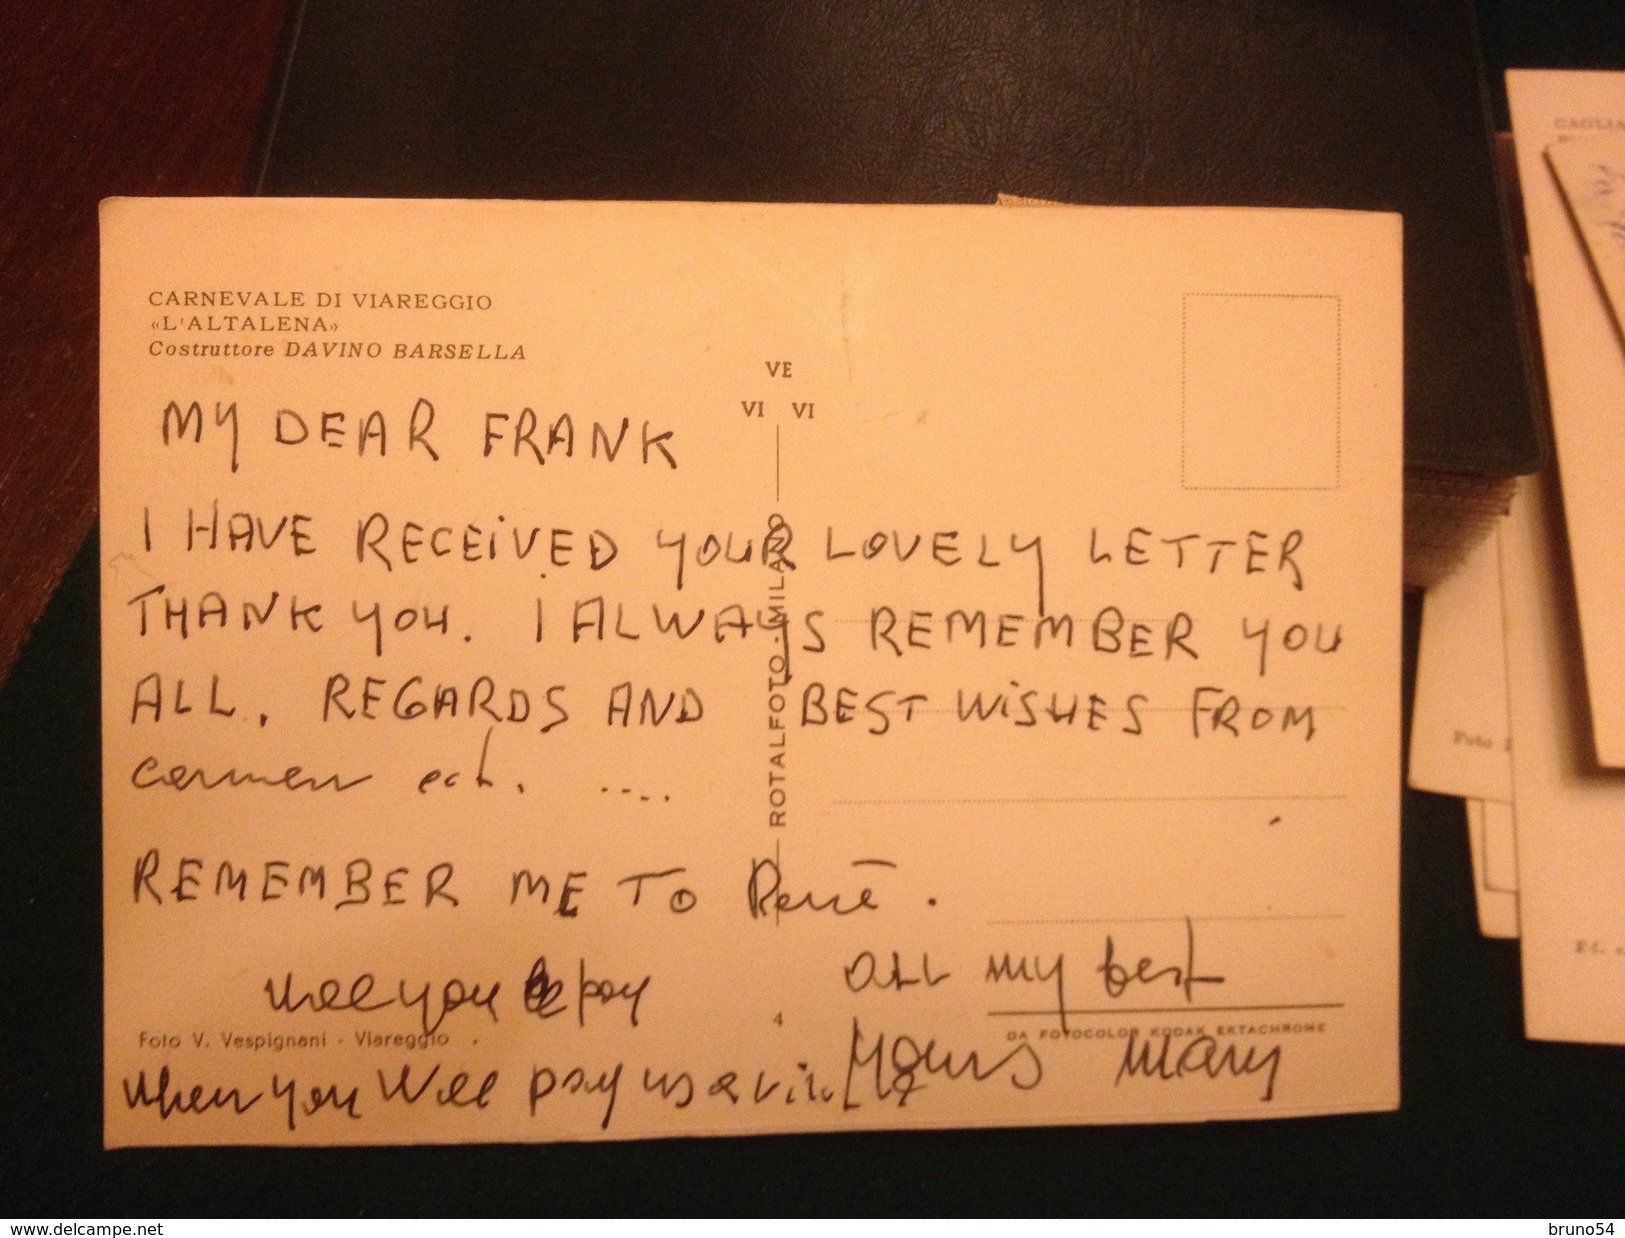 CARNEVALE DI VIAREGGIO
«L'ALTALENA»
Costruttore DAVINO BARSELLA
VE
VI VI
MY DEAR FRANK
I HAVE RECEIVED YOUR LOVELY LETTER
THANK YOU. I ALWAYS REMEMBER YOU
ALL. REGARDS AND BEST WISHES FROM
carmen ect. ....
REMEMBER ME TO René.
all my best
Yours Mary
when you will pay us a
ROTALFOTO - MILANO
4
Foto V. Vespignani - Viareggio
DA FOTOCOLOR KODAK EKTACHROME
CAGLIA
Foto
www.delcampe.net
bruno54